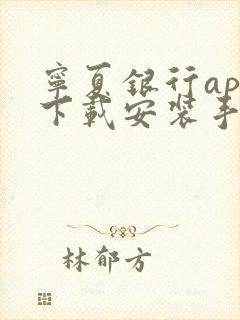 宁夏银行ap
下载安装手
林郁方